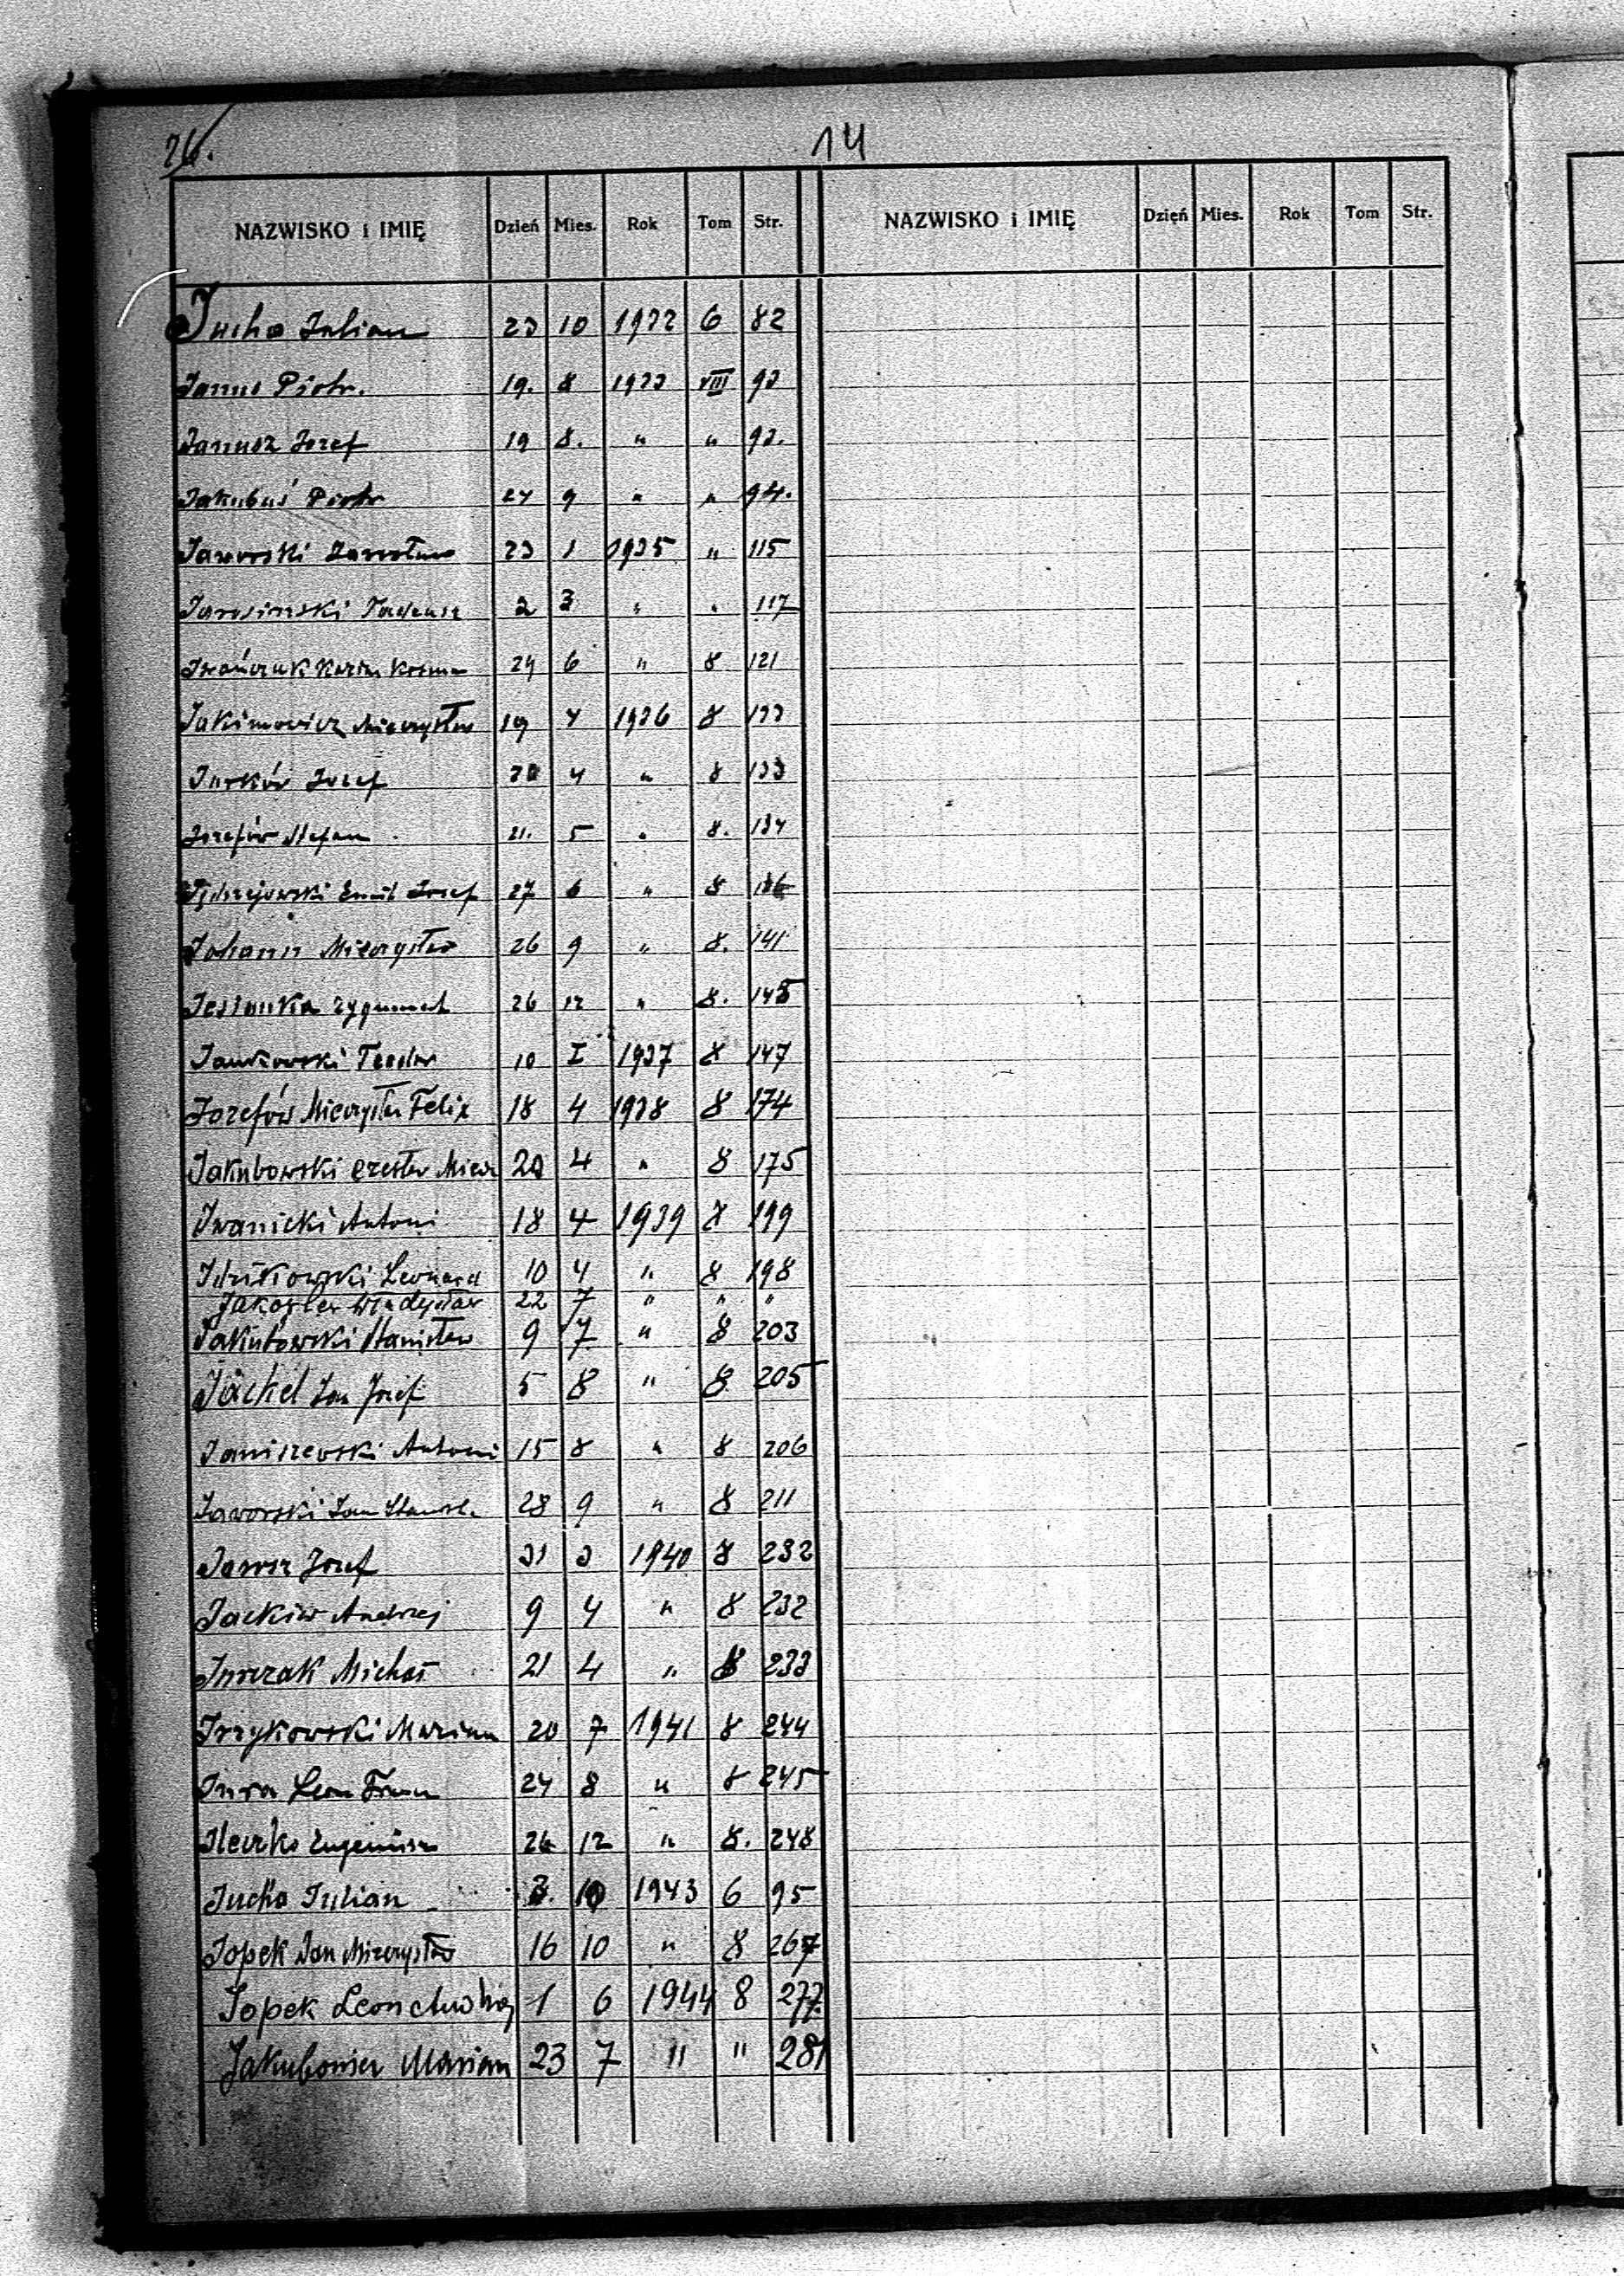 26.
14
NAZWISKO i IMIĘ Dzień Mies. Rok Tom Str. NAZWISKO i IMIĘ Dzień Mies. Rok Tom Str.
Jucha Julian 23 10 1932 6 82
Janus Piotr. 19. 8 1933 VIII 93
Janusz Jozef 19 8. " " 93.
Jakubuś Piotr 24 9 " " 94.
Jaworski Jarosław 23 1 1935 " 115
Jarosinski Tadeusz 2 3 " " 117
Iwańczuk Kosma 24 6 " 8 121
Jakimowicz Mieczysław 19 4 1936 8 133
Jurków Jozef 20 4 " 8 133
Jozefów Stefan 21. 5 " 8. 134
Jędrzejowski Emil Josef 27 6 " 8 136
Johann Mieczysław 26 9 " 8. 141
Zygmunt 26 12 " 8. 145
Jankowski Teodor 10 I 1937 8 147
Jozefów Mieczysław Felix 18 4 1938 8 174
Jakubowski Czesław Miecz 20 4 " 8 175
Iwanicki Antoni 18 4 1939 8 199
Idzikowski Leonard 10 4 " 8 198
Władysław 22 7 " " "
Jakubowski Stanisław 9 7 " 8 203
Jäckel Jan Józef 5 8 " 8 205
Janiszewski Antoni 15 8 " 8 206
Jaworski Jan Stanisł. 28 9 " 8 211
Jozef 31 3 1940 8 232
Jackiw Andrzej 9 4 " 8 232
Jurczak Michał 21 4 " 8 233
Irzykowski Marian 20 7 1941 8 244
Jura Leon 24 8 " 8 245
Ileczko Eugeniusz 26 12 " 8. 248
Jucha Julian 3. 10 1943 6 95
Jopek Jan Mieczysław 16 10 " 8 267
Jopek Leon 1 6 1944 8 277.
Marian 23 7 " " 281